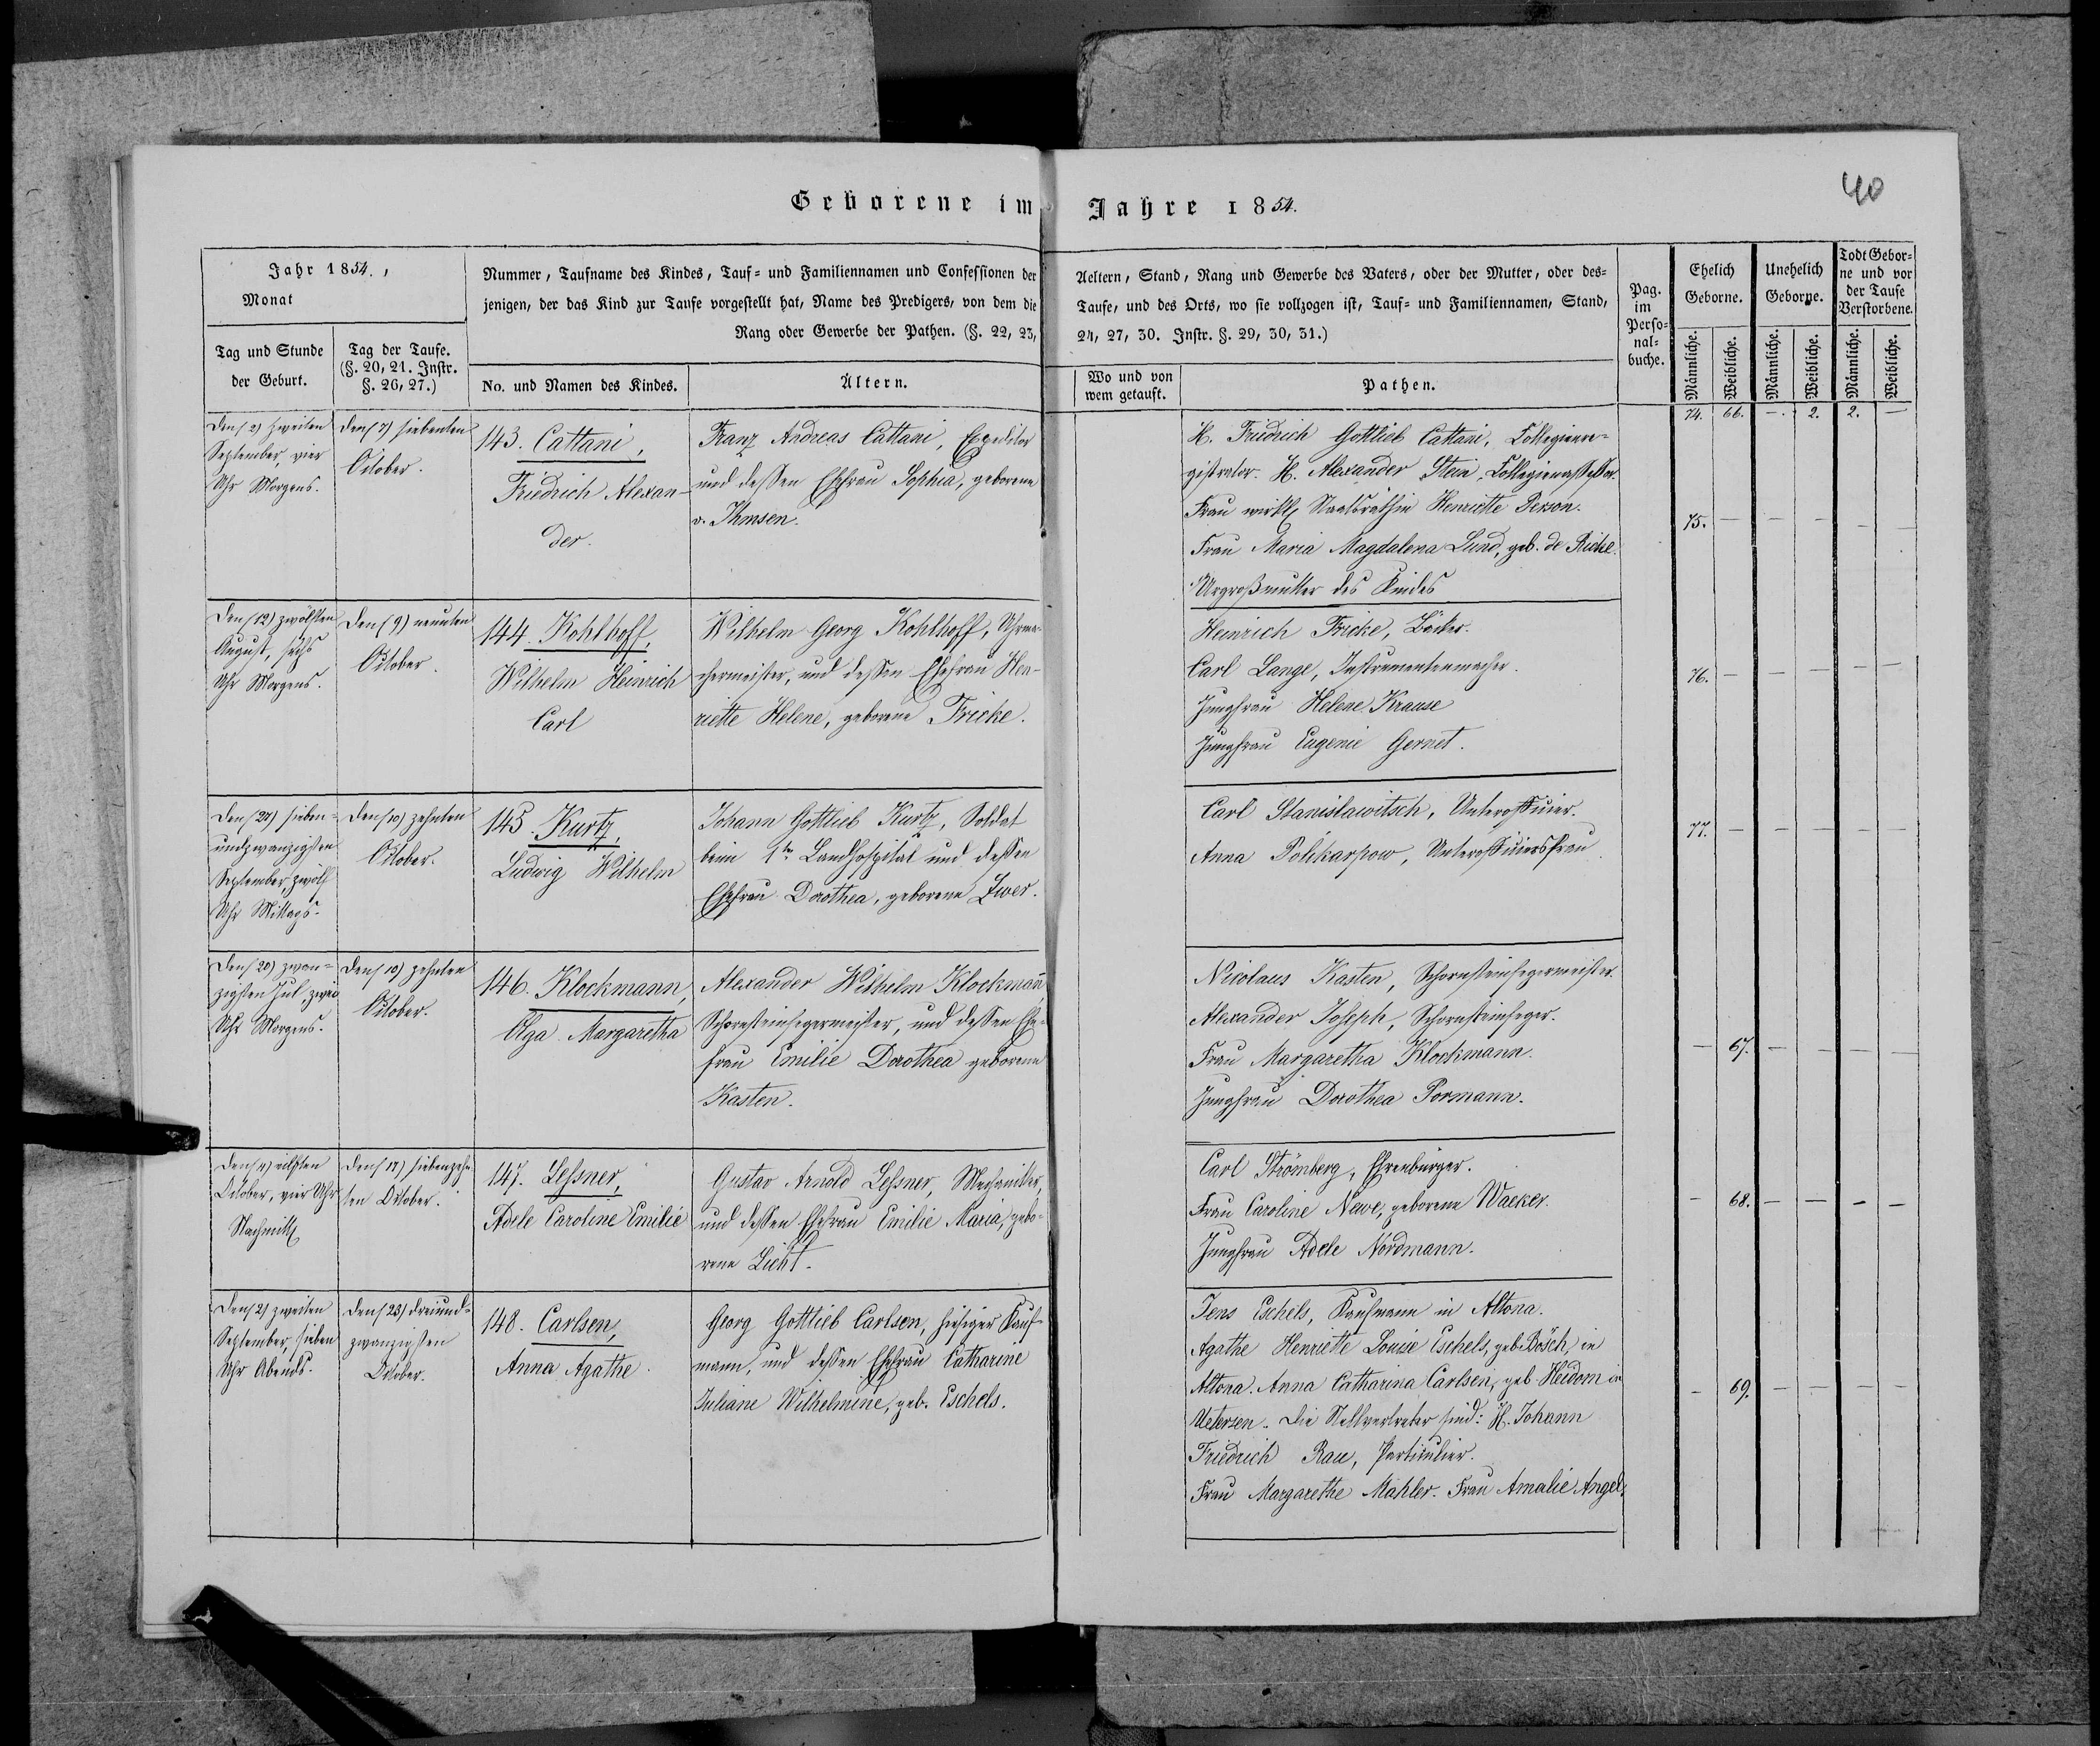 40
Geborene im Jahre 1854.
Jahr 1854.
Monat
Tag und Stunde
der Geburt.
Tag der Taufe.
(§. 20, 21. Instr.
§. 26, 27.)
Nummer, Taufname des Kindes, Tauf= und Familiennamen und Confessionen der
jenigen, der das Kind zur Taufe vorgestellt hat, Name des Predigers, von dem die
Rang oder Gewerbe der Pathen. (§. 22, 23,
No. und Namen des Kindes.
Ältern.
Aeltern, Stand, Rang und Gewerbe des Vaters, oder der Mutter, oder des=
Taufe, und des Orts, wo sie vollzogen ist, Tauf= und Familiennamen, Stand,
24, 27, 30. Instr. §. 29, 30, 31.)
Wo und von
wem getauft.
Pathen.
Pag.
im
Perso=
nal=
buche.
Ehelich
Geborne.
Unehelich
Geborne.
Todt Gebor=
ne und vor
der Taufe
Verstorbene.
Männliche.
Weibliche.
Männliche.
Weibliche.
Männliche.
Weibliche.
74. 66. — 2. 2. —
Den (2) zweiten
September, vier
Uhr Morgens.
Den (7) siebenten
October.
143. Cattani,
Friedrich Alexan-
der.
Franz Andreas Cattani, Expeditor
und dessen Ehefrau Sophia, geborene
v. Ihmsen.
H. Friedrich Gottlieb Cattani, Collegienre-
gistrator. H. Alexander Stein, Collegienassessor.
Frau wirkl. Staatsräthin Henriette Person.
Frau Maria Magdalena Lund, geb. de Riche.
Urgroßmutter des Kindes
75. — — — — —
Den (12) zwölften
August, sechs
Uhr Morgens.
Den (9) neunten
October.
144. Kohlhoff,
Wilhelm Heinrich
Carl
Wilhelm Georg Kohlhoff, Uhrma-
chermeister, und dessen Ehefrau Hen-
riette Helene, geborene Fricke.
Heinrich Fricke, Bäcker.
Carl Lange, Instrumentenmacher.
Jungfrau Helene Krause
Jungfrau Eugenie Gernet.
76. — — — — —
Den (27) sieben=
undzwanzigsten
September, zwölf
Uhr Mittags.
Den (10) zehnten
October.
145. Kurtz,
Ludwig Wilhelm
Johann Gottlieb Kurtz, Soldat
beim 1ten Landhospital und dessen
Ehefrau Dorothea, geborene Zwer.
Carl Stanislawitsch, Unterofficier.
Anna Polikarpow, Unterofficiersfrau.
77. — — — — —
Den (20) zwan=
zigsten Jul, zwei
Uhr Morgens.
Den (10) zehnten
October.
146. Klockmann,
Olga Margaretha
Alexander Wilhelm Klockmann̄,
Schornsteinfegermeister, und dessen Ehe-
frau Emilie Dorothea geborene
Kasten.
Nicolaus Kasten, Schornsteinfegermeister.
Alexander Joseph, Schornsteinfeger.
Frau Margaretha Klockmann.
Jungfrau Dorothea Pormann.
— 67. — — — —
Den (11) eilften
October, vier Uhr
Nachmitt.
Den (17) siebenzehn
ten October.
147. Lessner,
Adele Caroline Emilie
Gustav Arnold Lessner, Mechaniker,
und dessen Ehefrau Emilie Maria, gebo-
rene Licht.
Carl Strömberg, Ehrenbürger.
Frau Caroline Newe, geborene Waeker.
Jungfrau Adele Nordmann.
— 68. — — — —
Den (2) zweiten
September, sieben
Uhr Abends.
Den (23) dreiund-
zwanzigsten
October.
148. Carlsen,
Anna Agathe.
Georg Gottlieb Carlsen, hiesiger Kauf-
mann, und dessen Ehefrau Catharine
Juliane Wilhelmine, geb. Eschels.
Jens Eschels, Kaufmann in Altona.
Agathe Henriette Louise Eschels, geb. Bösch, in
Altona. Anna Catharina Carlsen, geb. Heidorn in
Uetersen. Die Stellvertreter sind: H. Johann
Friedrich Rau, Particulier.
Frau Margarethe Mahler. Frau Amalie Angel.
— 69. — — — —